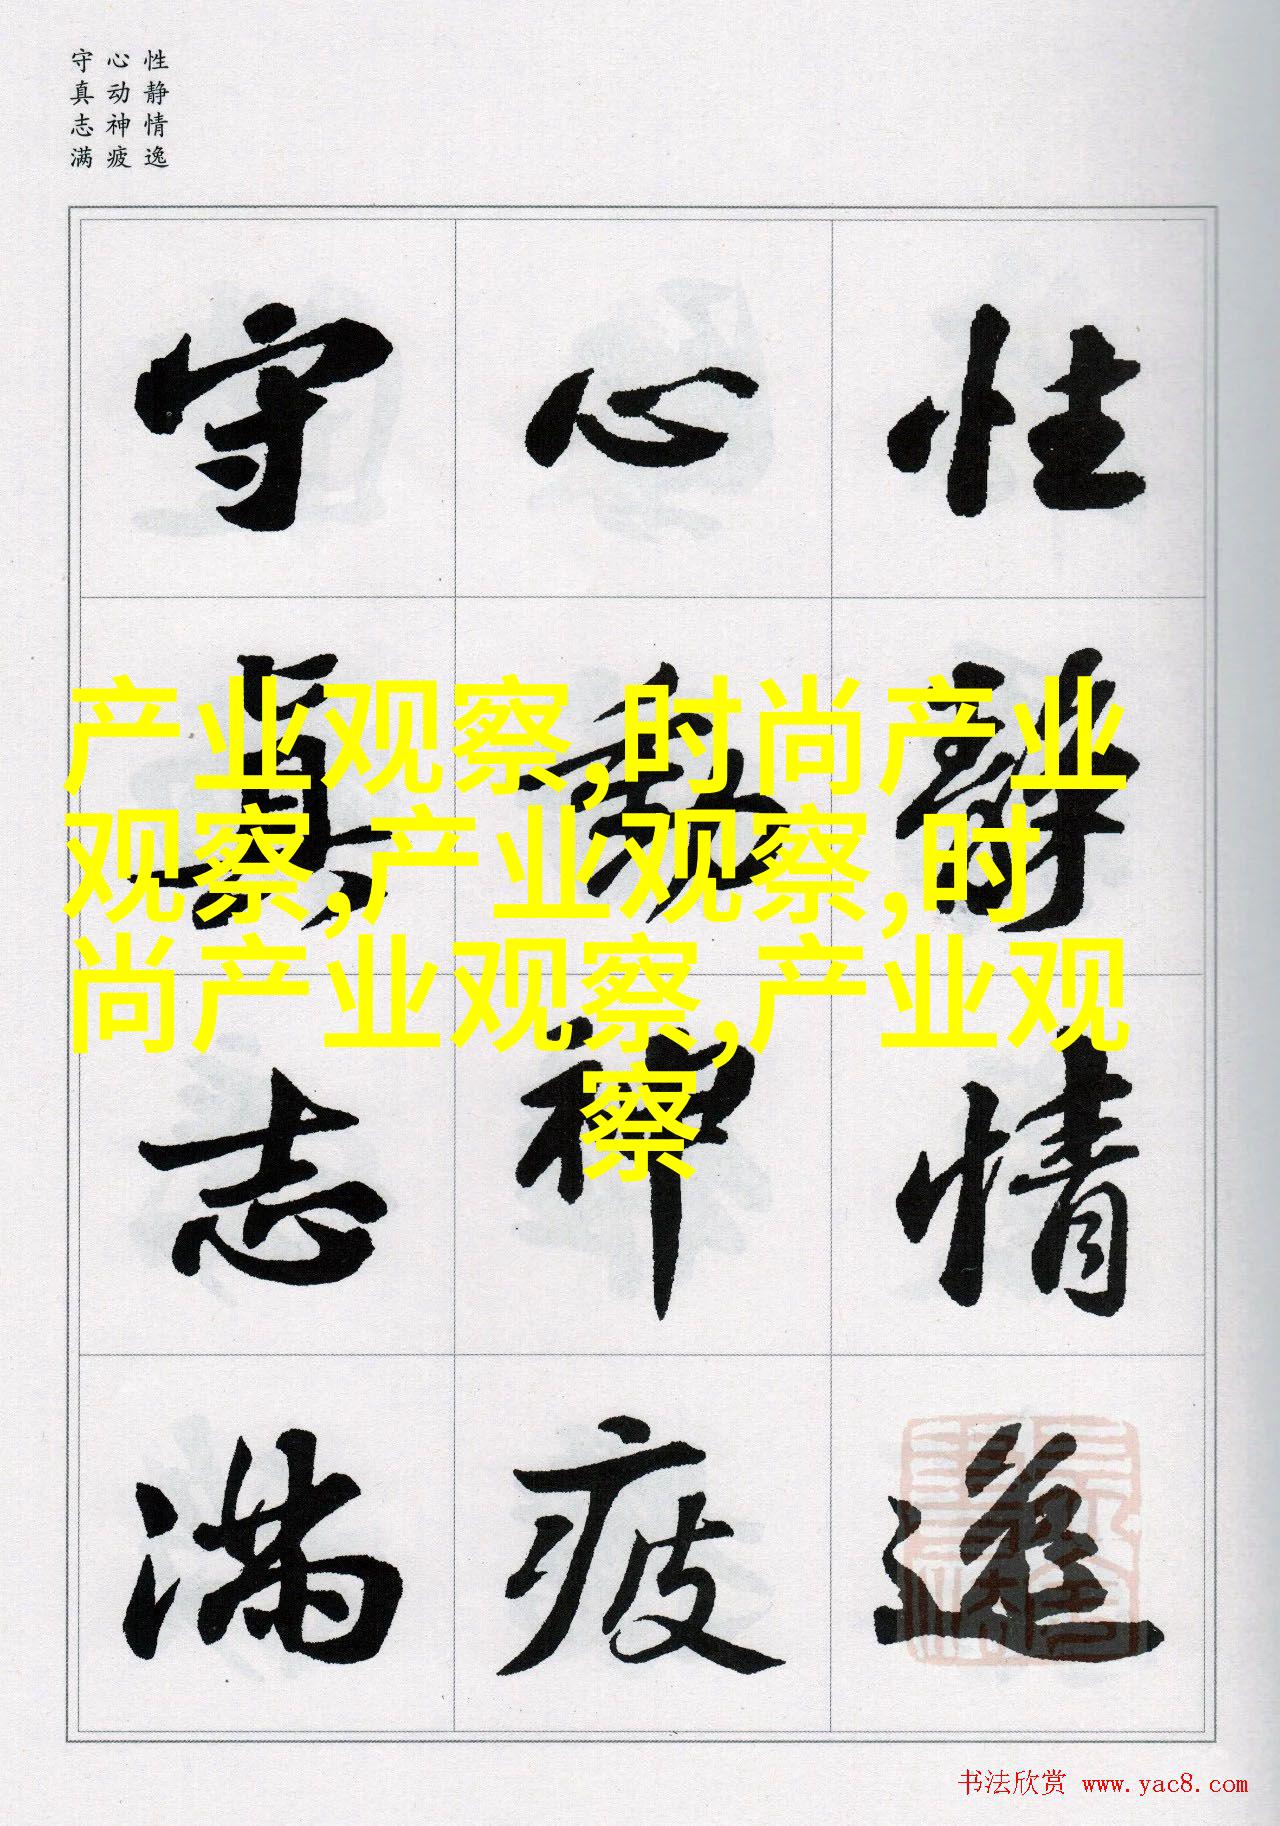 性静情逸
心动神疲
守真志满
性静情逸
心動神疲
守真志满
产业观察,时尚产业
观察,产业观察,时
尚产业观察,产业观
察
书法欣赏 www.yac8.com